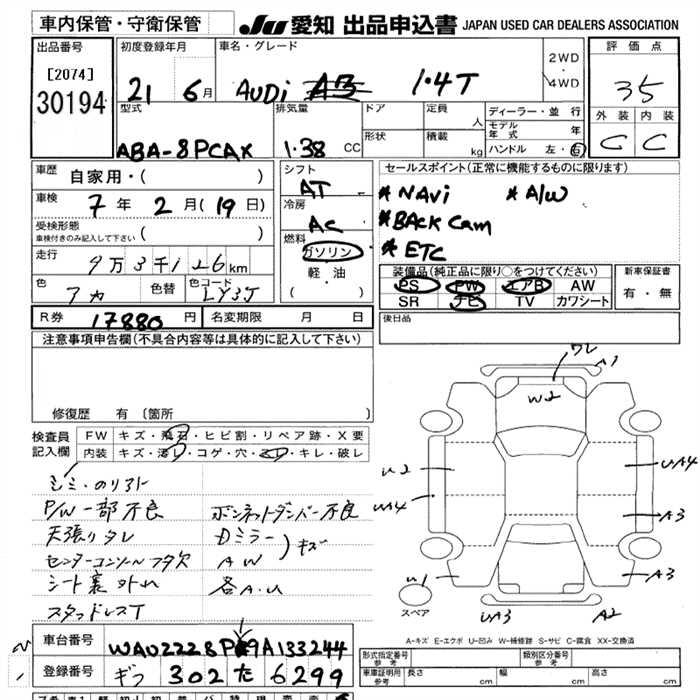 車内保管・守衛保管
JU 愛知 出品申込書 JAPAN USED CAR DEALERS ASSOCIATION
出品番号
[2074]
30194
初度登録年月
21 6月
車名・グレード
AUDi A3 1.4T
2WD
・
4WD
評価点
35
外装 内装
C C
型式
ABA-8PCAX
排気量
1.38 CC
ドア
定員
人
形状
積載
kg
ディーラー・並行
モデル年式 年
ハンドル 左・右
車歴
自家用・( )
車検
7年 2月(19日)
受検形態
車検付きのみ記入して下さい ( )
走行
9万3千126km
色
アカ
色替
色コード
LY3J
シフト
AT
冷房
AC
燃料
ガソリン
軽・油
( ・ )
セールスポイント(正常に機能するものに限ります)
* NAVi * A/W
* BACK Cam
* ETC
装備品(純正品に限り○をつけてください)
PS PW エアB AW
SR ナビ TV カワシート
新車保証書
有・無
後日品
R券 17880円
名変期限 月 日
注意事項申告欄(不具合内容等は具体的に記入して下さい)
修復歴 有 〔箇所 〕
検査員記入欄
FW キズ・飛石・ヒビ割・リペア跡・X要
内装 キズ・汚レ・コゲ・穴・スレ・キレ・破レ
シミ・のリアト
P/W一部不良 ボンネットダンパー不良
天張りタレ Dミラー
センターコンソールフタ欠 AW )キズ
シート裏外れ 各A.U
スタッドレスT
ワレ A1
W2
U2 UA4
UA4 A3
U1 A3
UA3 A2
スペア
A-キズ E-エクボ U-凹み W-補修跡 S-サビ C-腐食 XX-交換済
車台番号 WAUZZZ8P*9A133244
登録番号 ギフ 302 た 6299
形式指定番号 参考
類別区分番号 参考
車庫証明用 参考
長さ cm 幅 cm 高さ cm